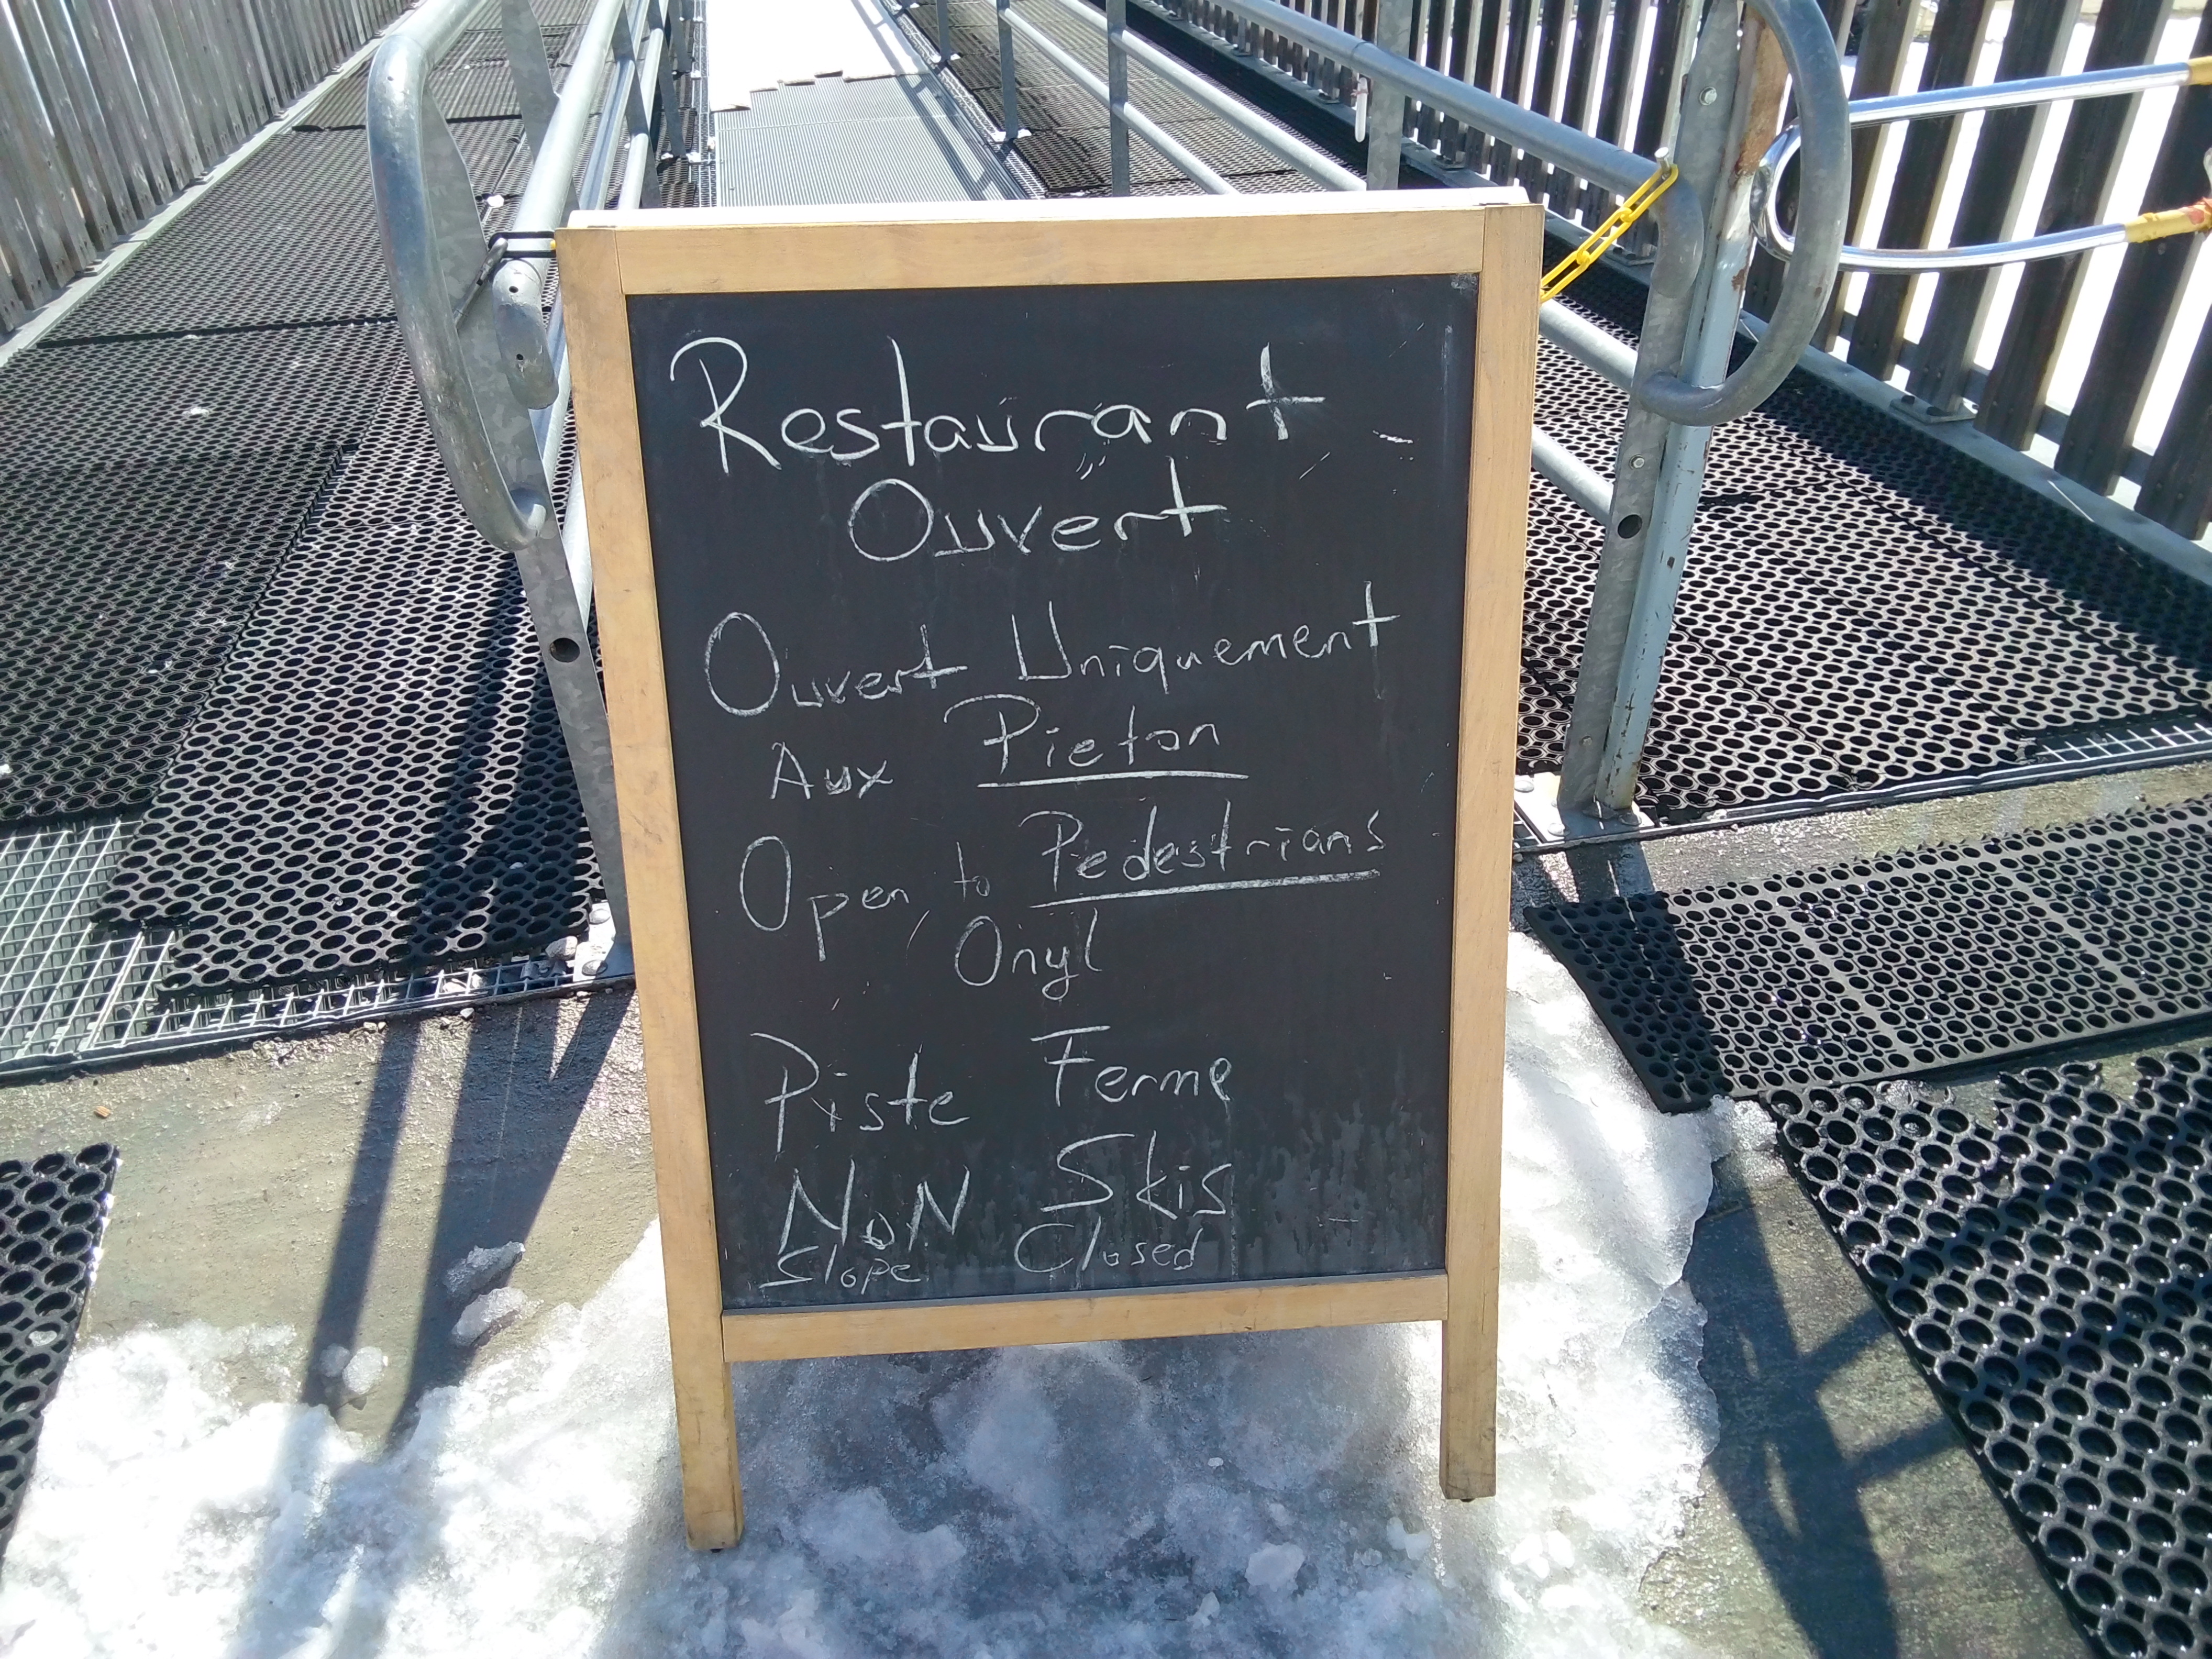 Restaurant
Ouvert
Ouvert Uniquement
Aux Pieton
Open to Pedestrians
Onyl
Piste Ferme
NoN Skis
Slope Closed